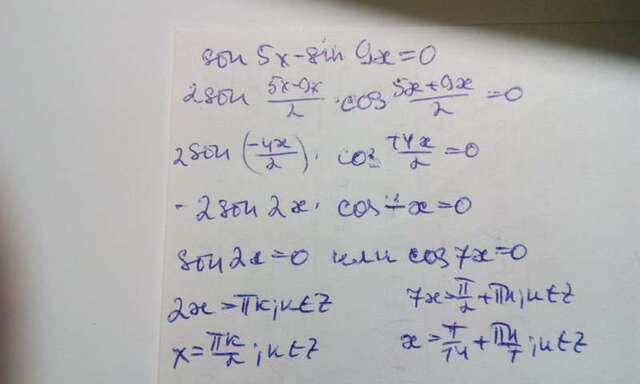 sin 5x - sin 9x = 0
2 sin (5x-9x)/2 · cos (5x+9x)/2 = 0
2 sin (-4x/2) · cos 14x/2 = 0
- 2 sin 2x · cos 7x = 0
sin 2x = 0 или cos 7x = 0
2x = πk; k ∈ Z 7x = π/2 + πk; k ∈ Z
x = πk/2; k ∈ Z x = π/14 + πk/7; k ∈ Z